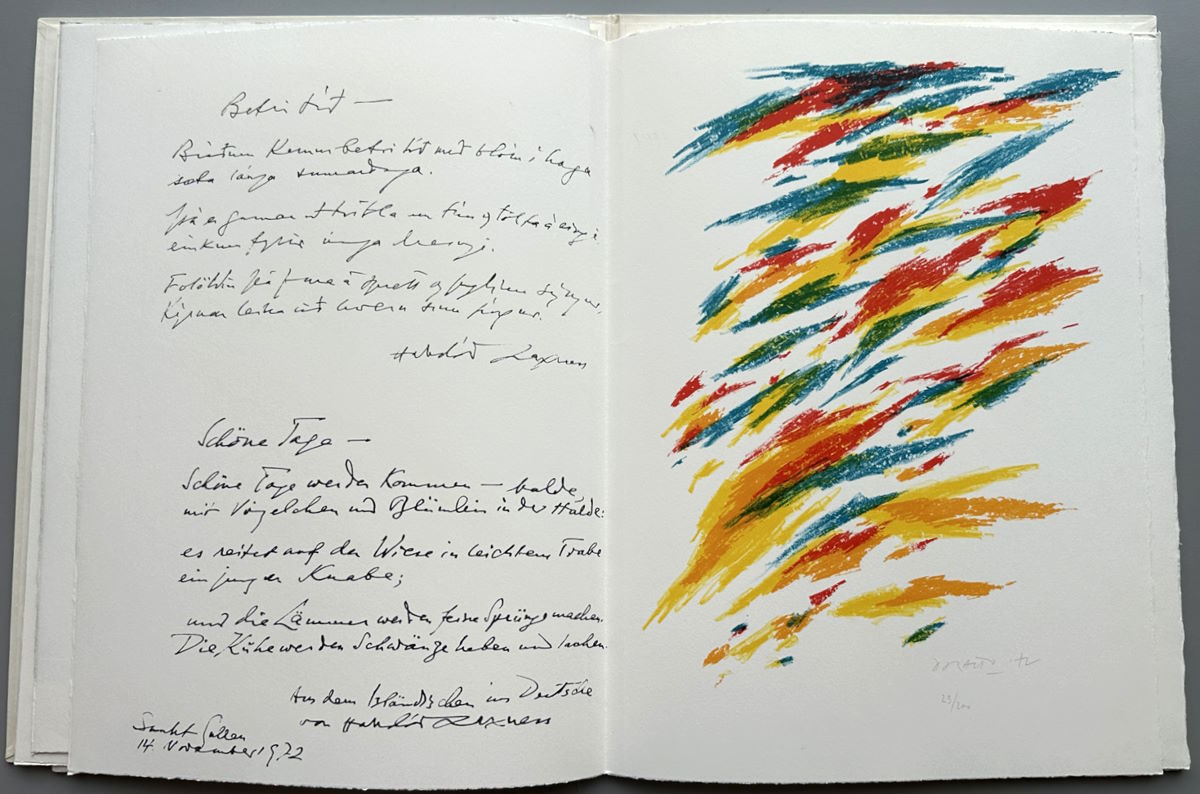 Betri tíð —
Bráðum kemur betri tíð með blóm í haga
sæta langa sumardaga.
Þá er gaman að
einkum fyrir unga
Fölöldin þá fara á sprett og fuglinn syngur,
kýrnar leika við hvern sinn fingur.
Halldór Laxness
Schöne Tage —
Schöne Tage werden kommen — balde
mit Vögelchen und Blümlein in der Halde:
es reitet auf der Wiese in leichtem Trabe
ein junger Knabe;
und die Lämmer werden feine Sprünge machen.
Die Kühe werden Schwänze heben und lachen.
Aus dem Isländischen ins Deutsche
von Halldór Laxness
Sankt Gallen
14. November 1972
Dorazio 72
29/200